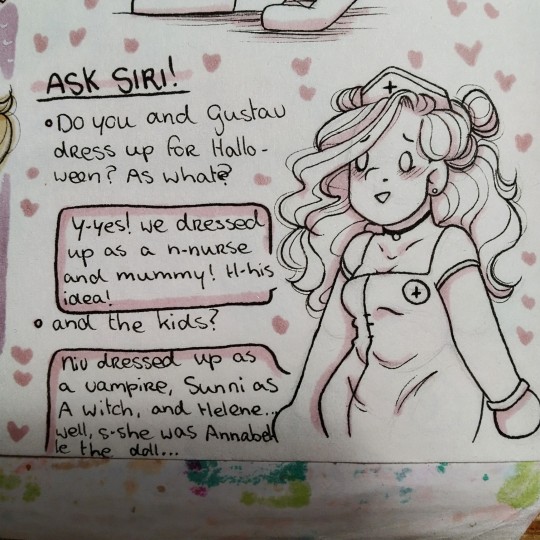 ASK SIRI!
• Do you and Gustav
dress up for Hallo-
ween? As what?
Y-yes! we dressed
up as a n-nurse
and mummy! H-his
idea!
• and the kids?
Niv dressed up as
a vampire, Sunni as
A witch, and Helene...
well, s-she was Annabel
le the doll...